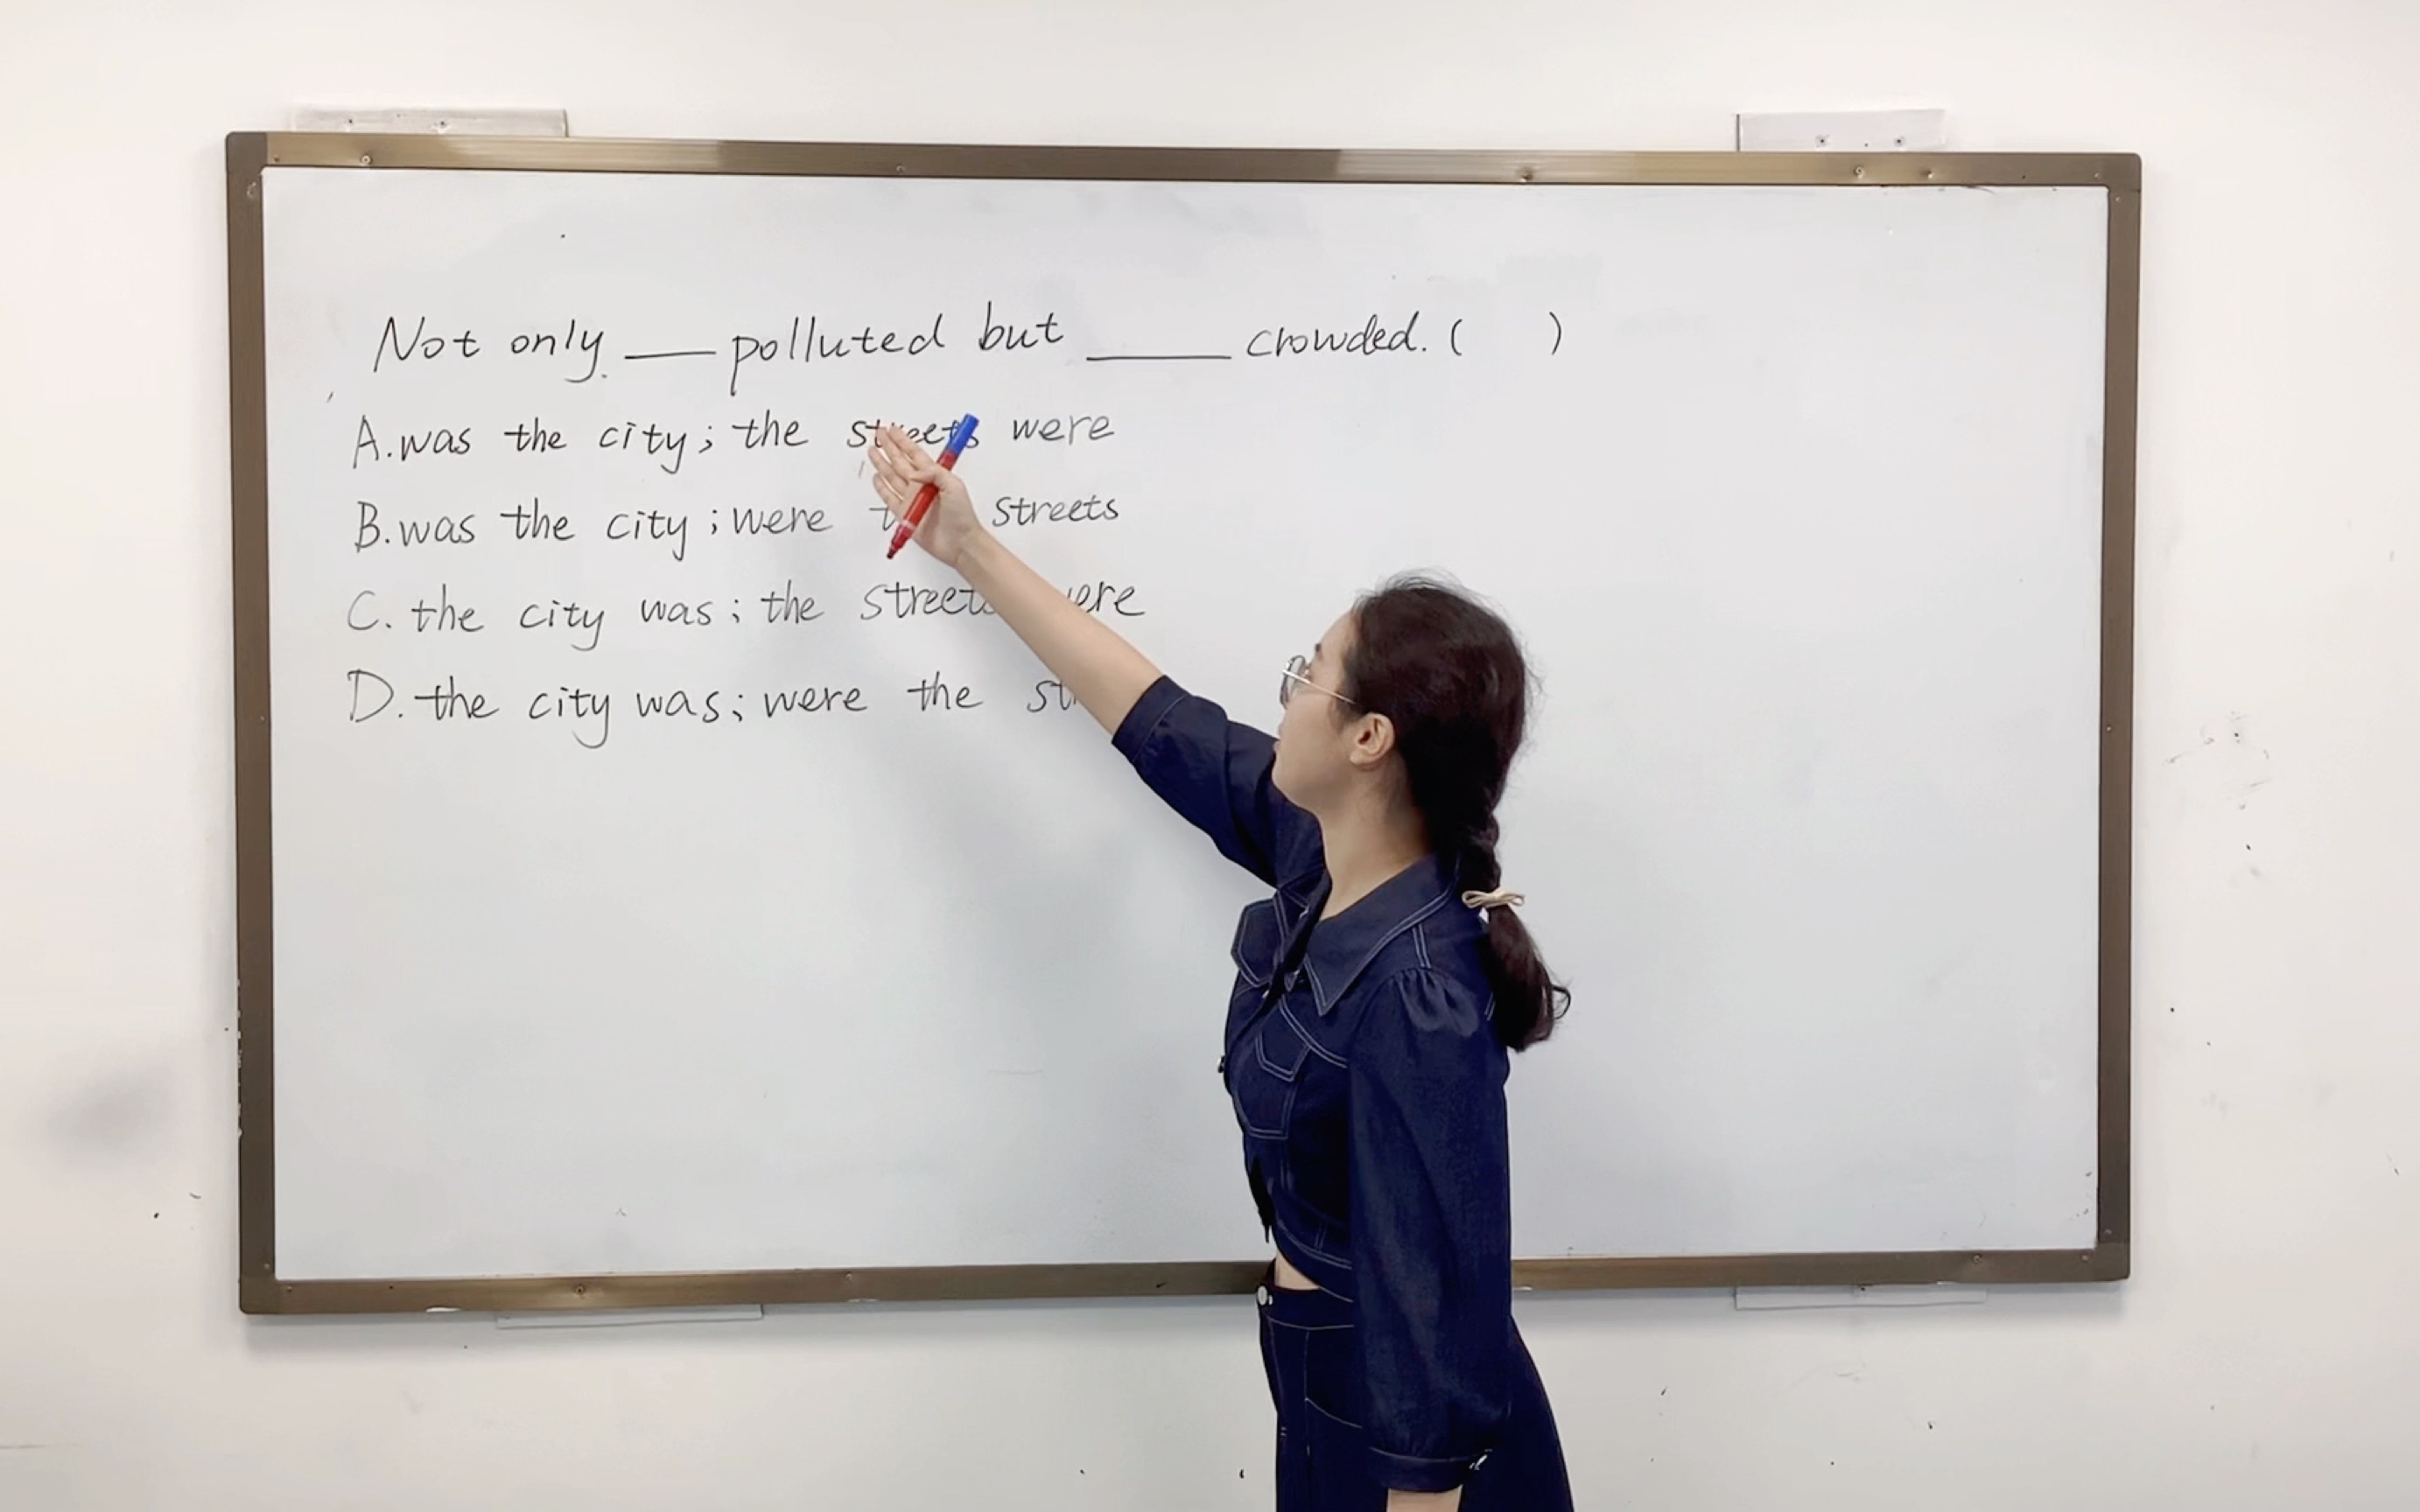 Not only ___ polluted but ____ crowded. (    )
A. was the city; the streets were
B. was the city; were streets
C. the city was; the
D. the city was; were the